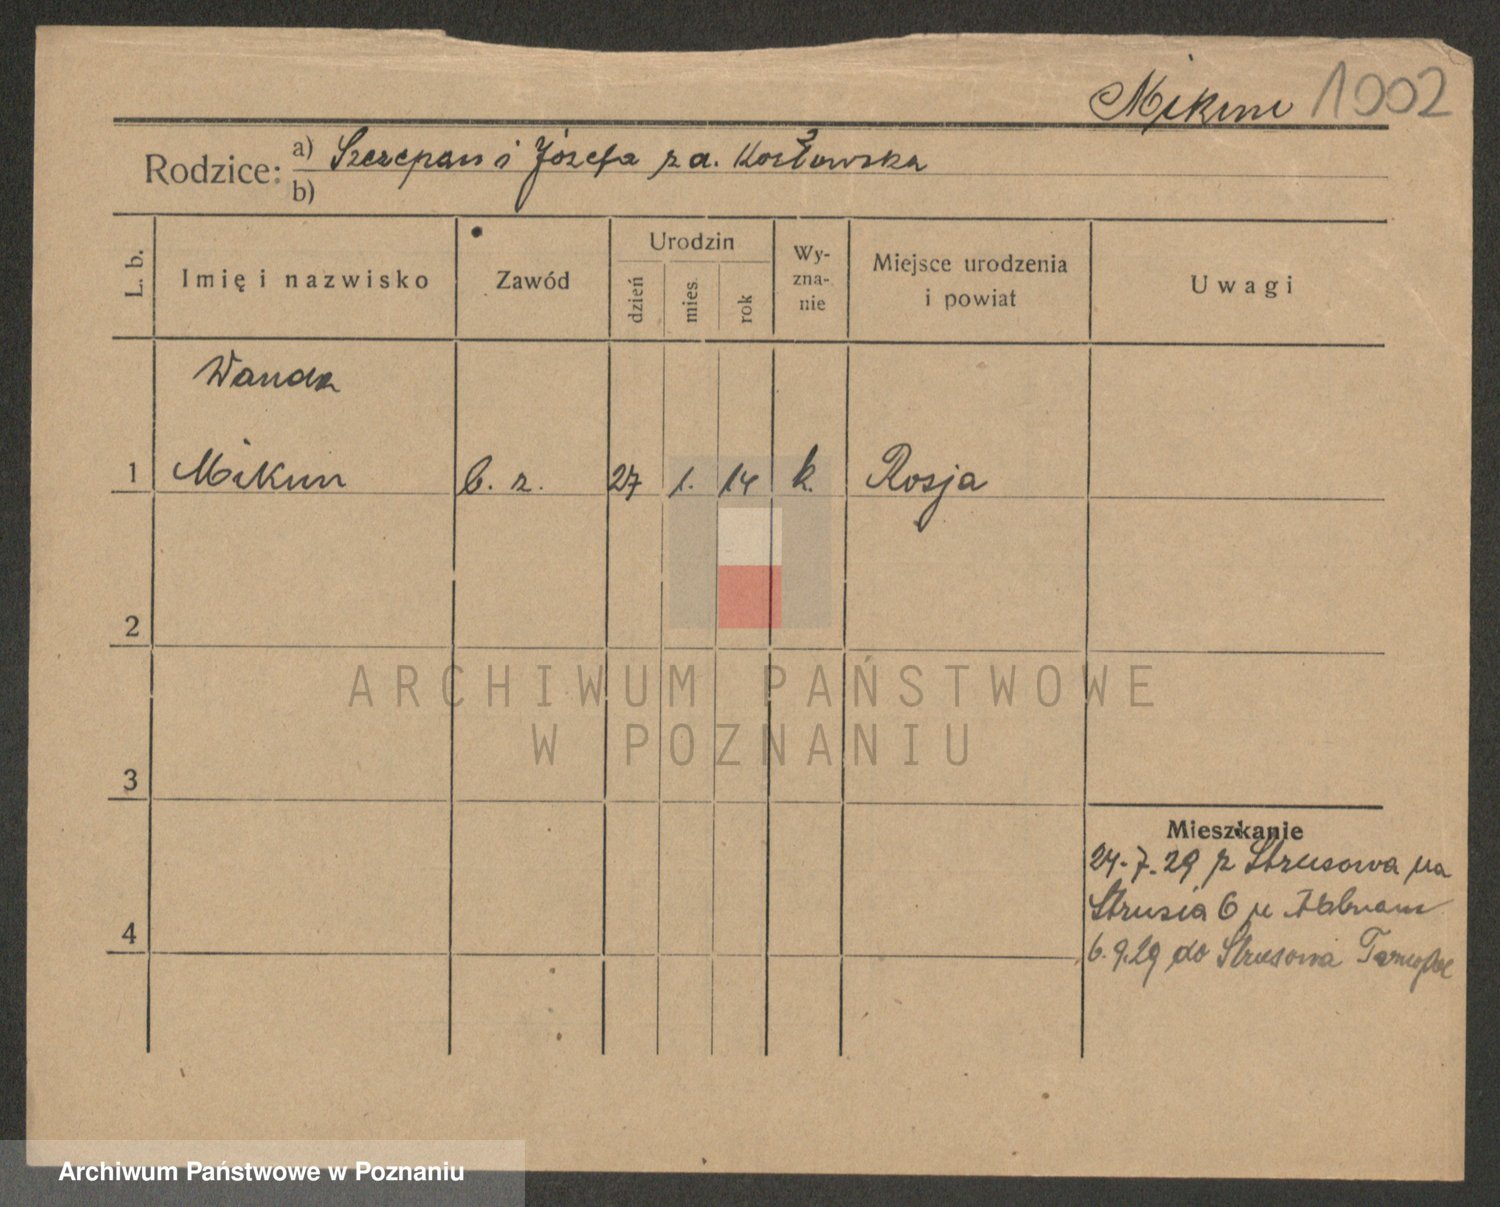 Mikun 1002
Rodzice: a) Szczepan i Józefa z d. Kozłowska
b)
L. b. Imię i nazwisko Zawód Urodzin dzień mies. rok Wyzna-nie Miejsce urodzenia i powiat Uwagi
Wanda
1 Mikun b. z. 27 1. 14 k. Rosja
2
ARCHIWUM PAŃSTWOWE
W POZNANIU
3
Mieszkanie
24.7.29 z Strusowa na
Strusia 6 u
4
6.9.29 do Strusowa
Archiwum Państwowe w Poznaniu